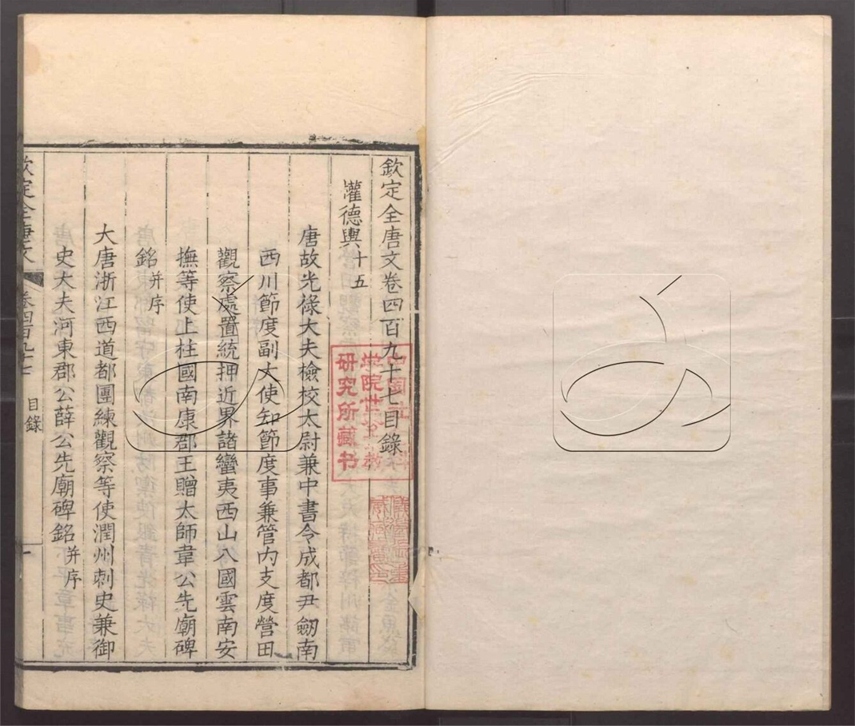 欽定全唐文卷四百九十七目錄
權德輿十五
唐故光祿大夫檢校太尉兼中書令成都尹劒南
西川節度副大使知節度事兼管內支度營田
觀察處置統押近界諸蠻夷西山八國雲南安
撫等使上柱國南康郡王贈太師韋公先廟碑
銘并序
大唐浙江西道都團練觀察等使潤州刺史兼御
史大夫河東郡公薛公先廟碑銘并序
欽定全唐文 卷四百九十七 目錄 一
研究所藏书